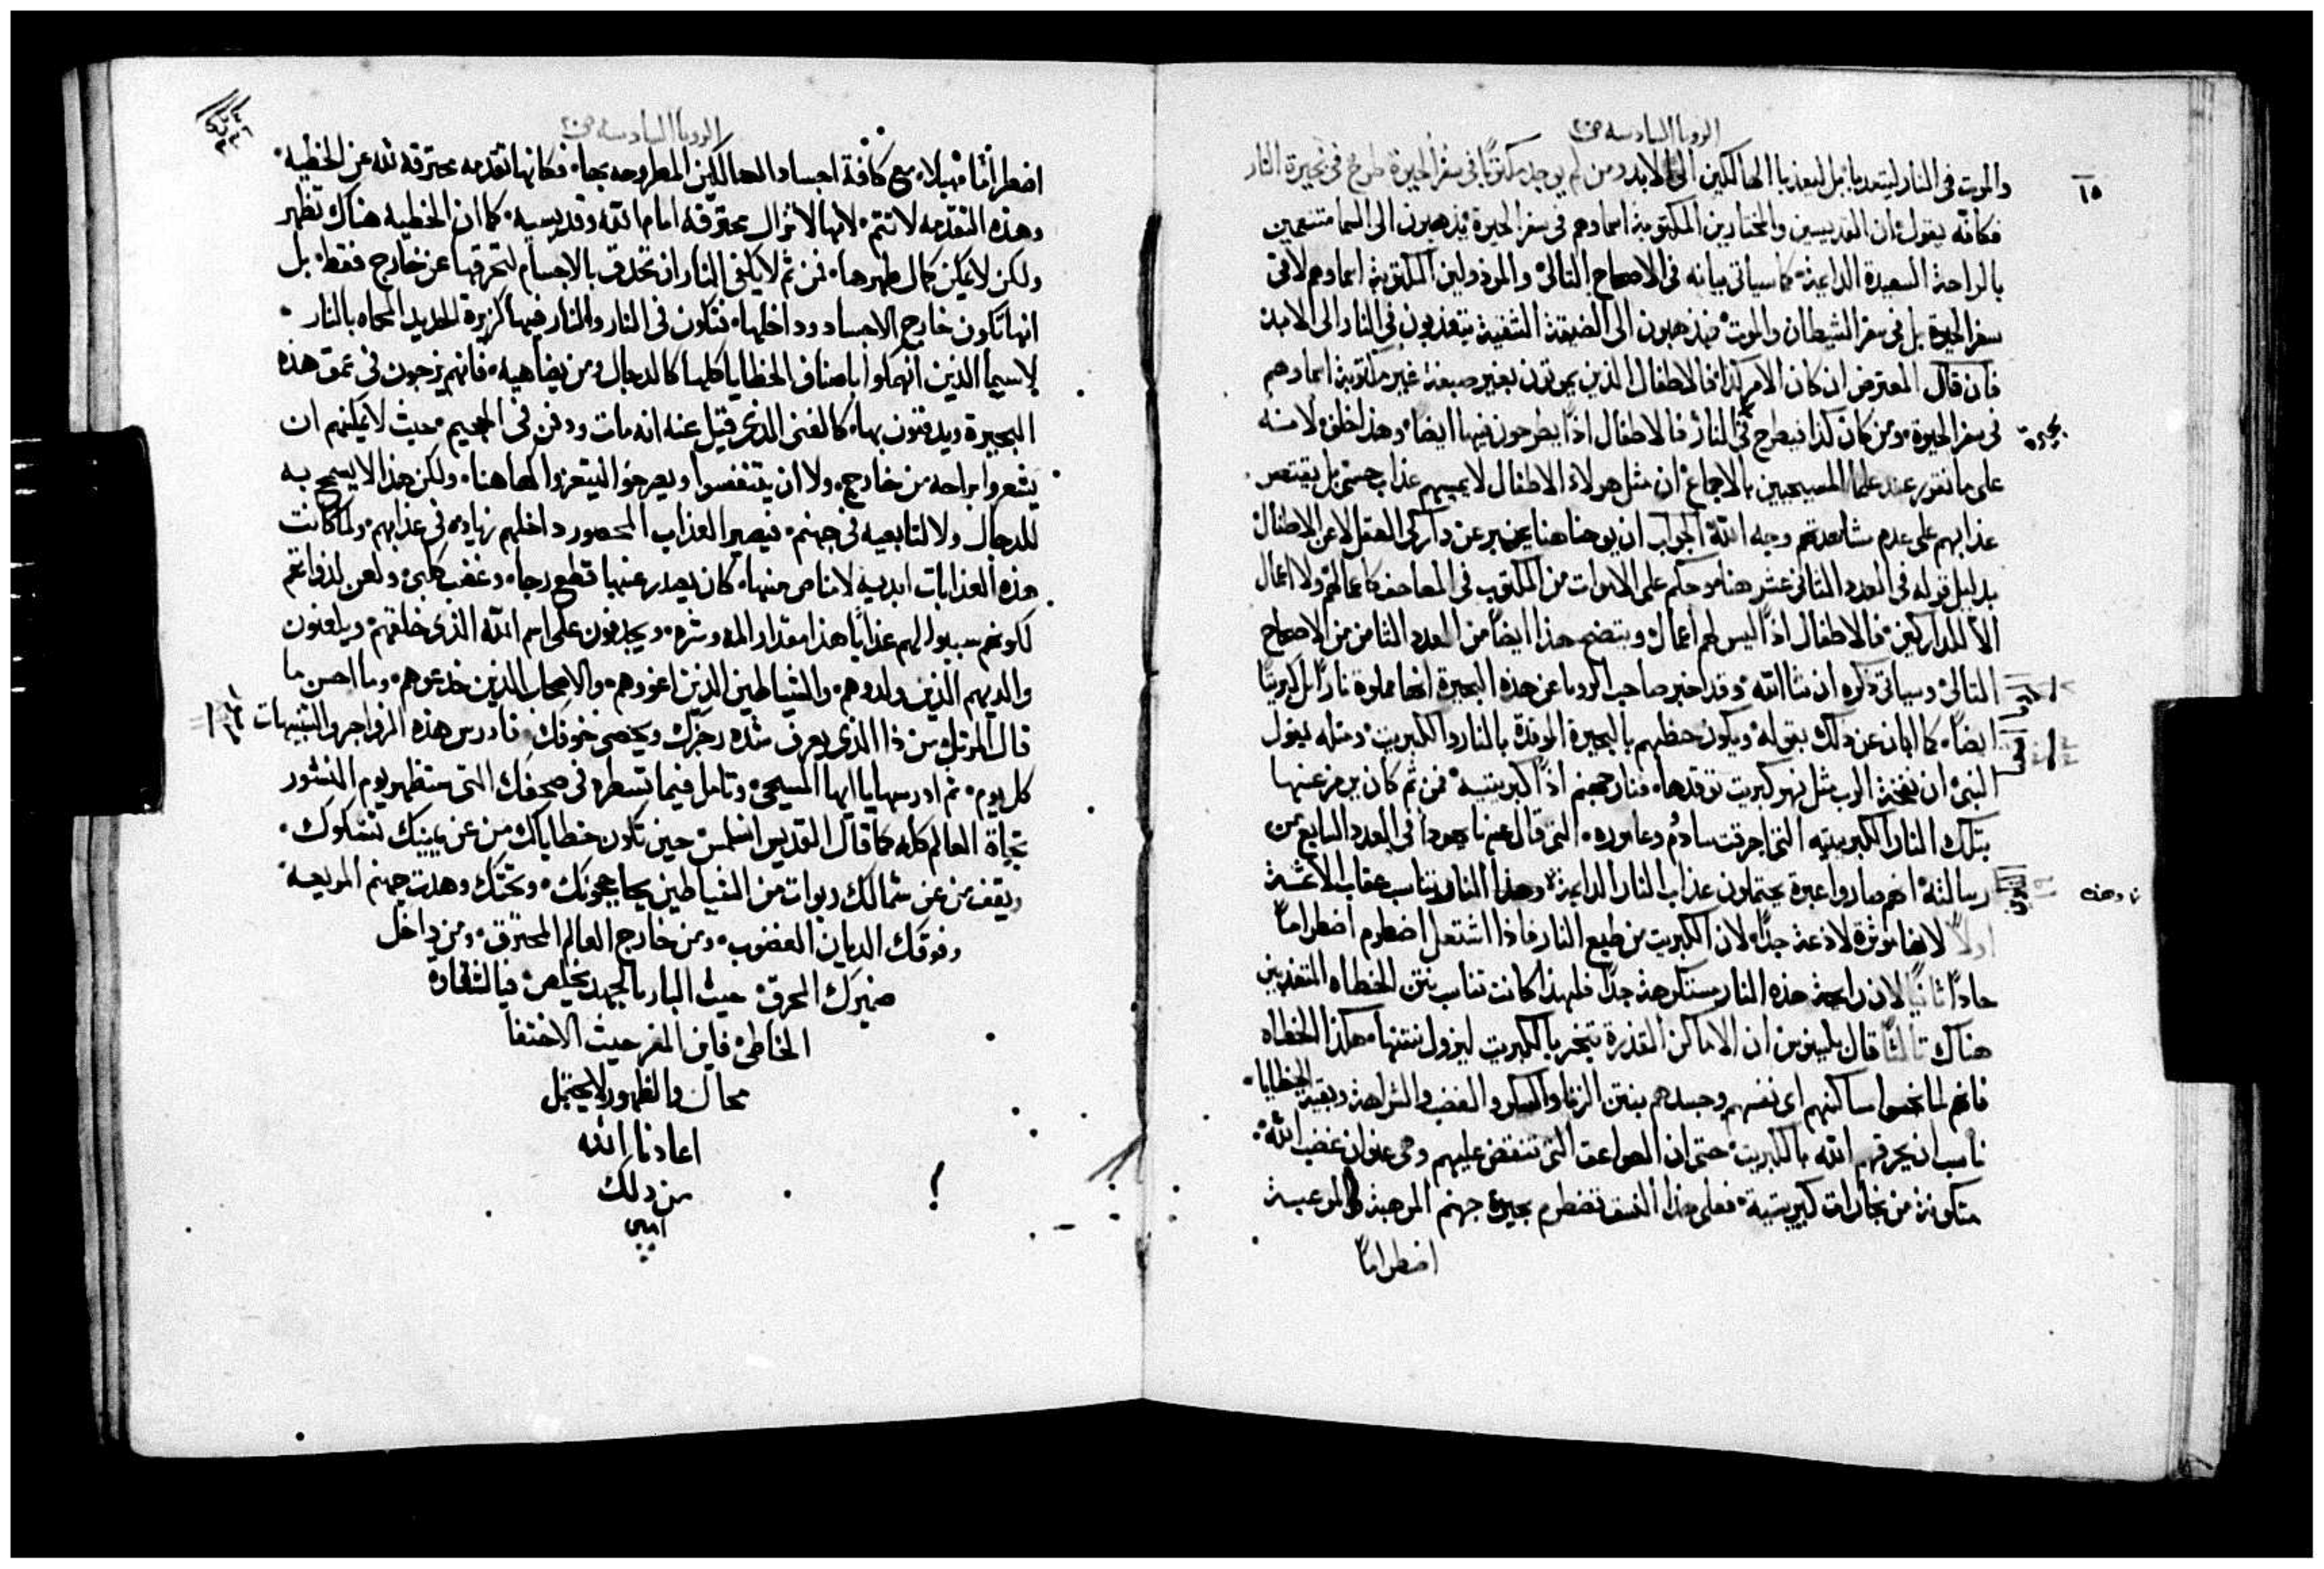 الرويا السادسه ص٢٠
١٥
والموت في النار ليتعدبا بل ليعذبا الهالكين الى الابد ومن لم يوجد مكتوبًا في سفر الحيوة طرح في بحيرة النار
فكانه يقول ان القديسين والمختارين المكتوبة اسماوهم في سفر الحيوة يذهبون الى السما متنعمين
بالراحة السعيدة الداعية كما سياتي بيانه في الاصحاح التالي والمرذولين المكتوبة اسماوهم لا في
سفر الحيوة بل في سفر الشيطان والموت فيذهبون الى الضيقة الشقية يتعذبون في النار الى الابد
فان قال المعترض ان كان الامر كذا فالاطفال الذين يموتون بغير صبغة غير مكتوبة اسماوهم
في سفر الحيوة ومن كان كذا فيطرح في النار فالاطفال اذًا يطرحون فيها ايضًا وهذا خلف لانه
بحيرة
على ما تقرر عند علما المسيحيين بالاجماع ان مثل هولاء الاطفال لا يمسهم عذاب حسي بل يقتصر
عذابهم على عدم مشاهدتهم وجه الله الجواب ان يوحنا هنا يخبر عن داركى العقل لا عن الاطفال
بدليل قوله في العدد الثاني عشر هنا وحكم على الاموات من المكتوب في المصاحف كاعمالهم ولا اعمال
الا للداركين فالاطفال اذًا ليس لهم اعمال ويتضح هذا ايضًا من العدد الثامن من الاصحاح
التالي وسياتي ذكره ان شا الله وقد اخبر صاحب الرويا عن هذه البحيرة انها مملوة نارًا بل كبريتًا
ايضًا كما ابان عن ذلك بقوله ويكون حظهم بالبحيرة الموقدة بالنار والكبريت ومثله يقول
النبي ان نفخة الرب مثل نهر كبريت توقدها فنار جهنم اذًا كبريتية فمن ثم كان يرمز عنها
بتلك النار الكبريتيه التي احرقت سادوم وعاموره التي قال عنها يهودا في العدد السابع من
رسالته انهم صاروا عبرة يحتملون عذاب النار الداعية وهذا النار تناسب عقاب الاثمة
تا وهذه
اولاً لانها موثرة لاذعة جدًا لان الكبريت من طبع النار فاذا اشتعل اضطرم اضطرامًا
حادًا ثانيًا لان رايحة هذه النار مستكرهة جدًا فلهذا كانت تناسب نتن الخطاه المتعذبين
هناك ثالثًا قال بلينوس ان الاماكن القذرة تبخر بالكبريت ليزول نتنها هكذا الخطاه
فانهم لما نجسوا مساكنهم اى نفسهم وجسدهم بنتن الزنا والسكر والغضب والشراهة وبقية الخطايا
ناسب ان يحرقهم الله بالكبريت حتى ان الصواعق التي تنقض عليهم وهى عنوان غضب الله
متكونة من بخارات كبريتية فعلى هذا النسق تضطرم بحيرة جهنم المرهبة المرعبة
اضطرامًا
الرويا السادسه ص٢٠
اضطرامًا مهيلاً مع كافة اجساد الهالكين المطروحه بها فكانها تقدمه محترقه لله عن الخطيه
وهذه التقدمه لا تتم لانها لا تزال محترقه امام الله وقديسيه كما ان الخطيه هناك تظهر
ولكن لا يمكن كمال طهرها فمن ثم لا يكفي النار ان تحدق بالاجسام لتحرقها عن خارج فقط بل
انها تكون خارج الاجساد وداخلها فتكون في النار والنار فيها كزبرة الحديد المحماه بالنار
لاسيما الذين انهمكوا باصناف الخطايا كلها كالدجال ومن يضاهيه فانهم يزجون في عمق هذه
البحيرة ويدفنون بها كالغني الذي قيل عنه انه مات ودفن في الجحيم حيث لا يمكنهم ان
يشعروا براحه من خارج ولا ان يتنفسوا ويصرخوا ليتعزوا كما هاهنا ولكن هذا لا يسمح به
للدجال ولا لتابعيه في جهنم فيصير العذاب المحصور داخلهم زياده في عذابهم ولما كانت
هذه العذابات ابديه لا مناص منها كان يصدر عنها قطع رجا وغضب كلبي ولعن لذواتهم
لكونهم سببوا لهم عذابًا هذا مقدار المه وشره ويجدفون على اسم الله الذي خلقهم ويلعنون
والديهم الذين ولدوهم والشياطين الذين اغووهم والاصحاب الذين خدعوهم وما احسن ما
قال المرتل من ذا الذي يعرف شده رجزك ويحصى خوفك فادرس هذه الزواجر والتنبيهات
كل يوم ثم ادرسها يا ايها المسيحي وتامل فيما تسطره في صحفك التي ستظهر يوم النشور
تجاة العالم كله كما قال القديس انسلمس حين تكون خطاياك من عن يمينك تشكوك
ويقف من عن شمالك ربوات من الشياطين يحاججونك وتحتك وهدت جهنم المريعة
وفوقك الديان الغضوب ومن خارج العالم المحترق ومن داخل
ضميرك المحرق حيث البار بالجهد يخلص فيا لشقاوة
الخاطي فاين المفر حيث الاختفا
محال والظهور لا يحتمل
اعاذنا الله
من ذلك
امين